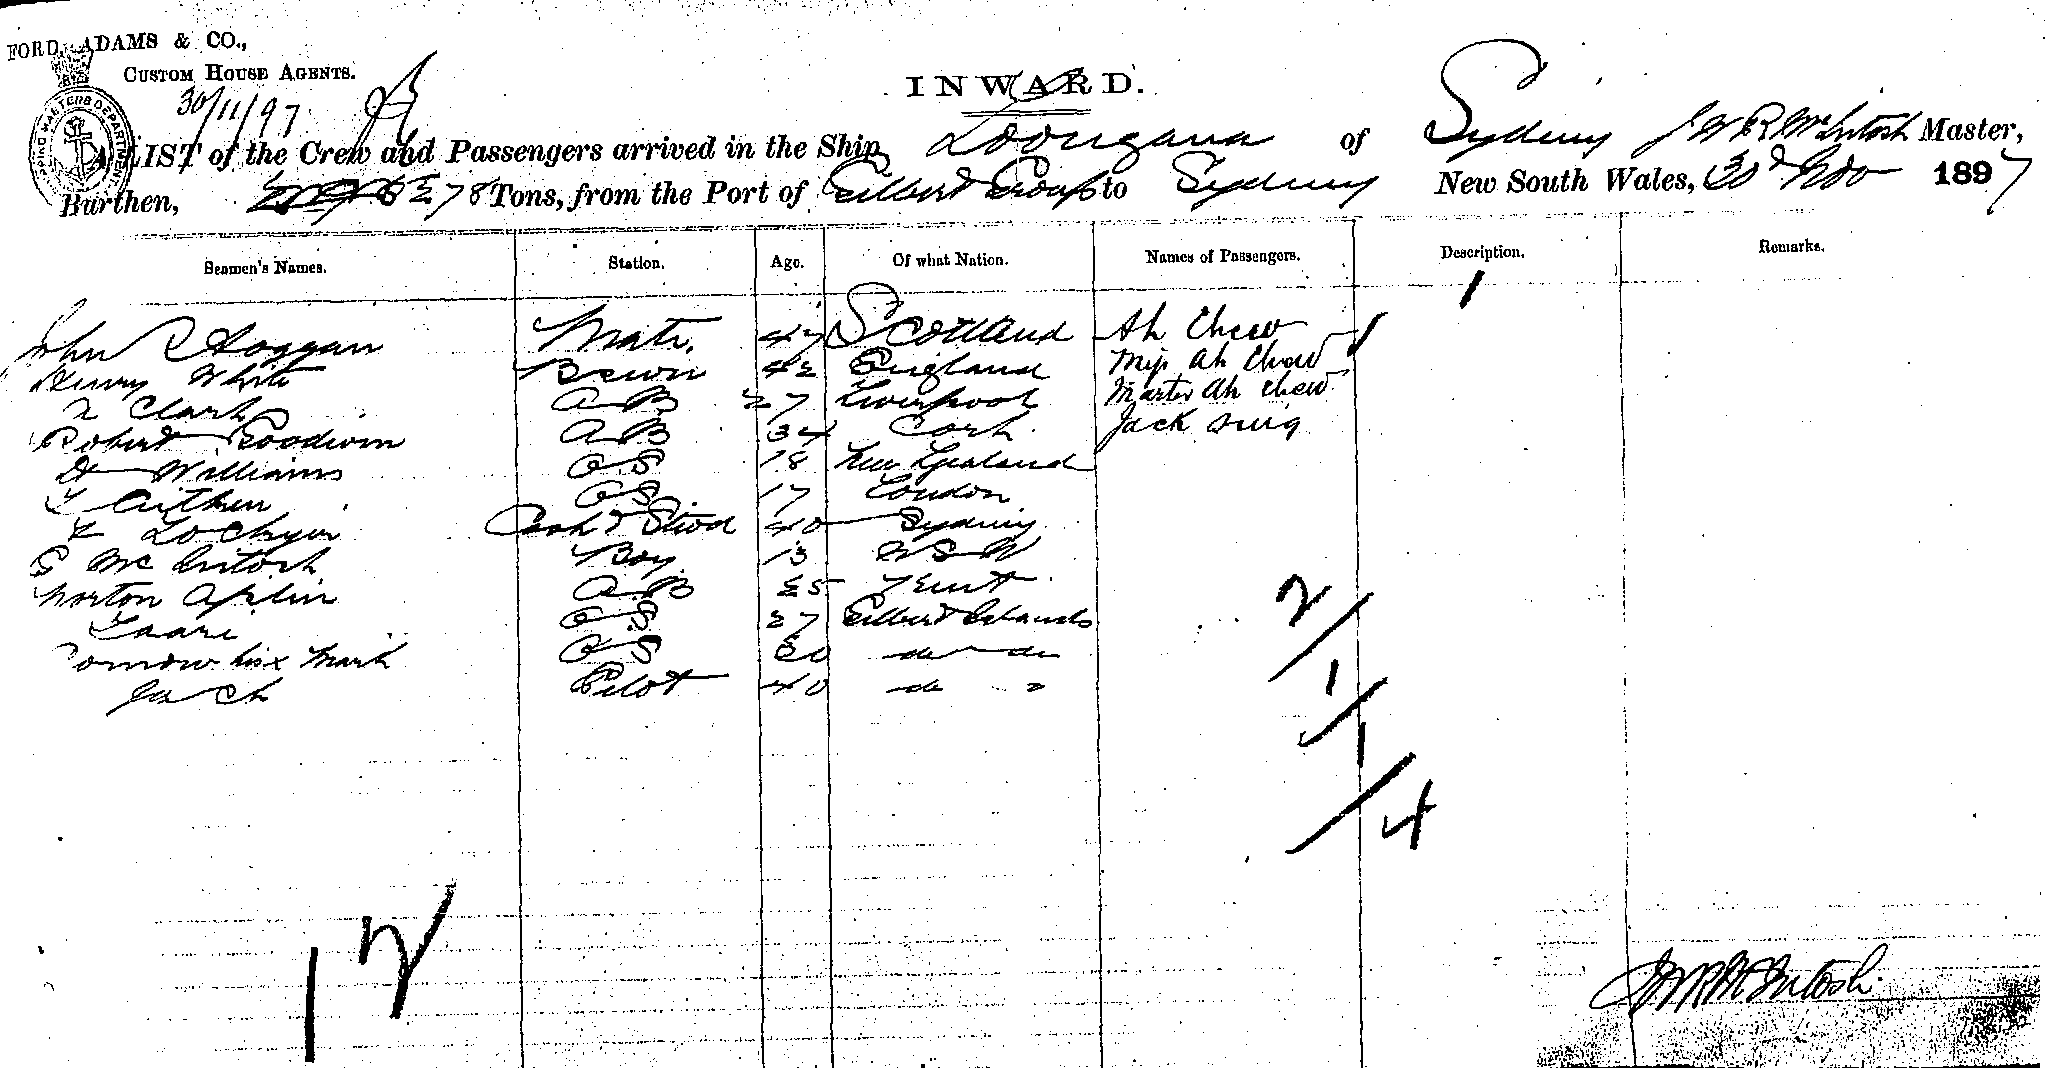 FORD, ADAMS & CO.,
CUSTOM HOUSE AGENTS.
30/11/97
INWARD.
A LIST of the Crew and Passengers arrived in the Ship Loongana of Sydney J W R McIntosh Master,
Burthen, 278 Tons, from the Port of Gilbert Group to Sydney New South Wales, 30th Nov 1897
Seamen's Names. Station. Age. Of what Nation. Names of Passengers. Description. Remarks.
John Hoggan Mate. 47 Scotland Ah Chew
Henry White Bswn 42 England Miss Ah Chew
Clark AB 27 Liverpool Master Ah Chew
Robert Goodwin AB 34 Cork Jack
Williams OS 18 New Zealand
Aitken OS 17 London
Lockyer Cook & Stwd 40 Sydney
McIntosh Boy 13 NSW
Norton Aplin AB 25 Kent
Taare OS 27 Gilbert Islands
his x Mark OS do do
Jack Pilot 40 do "
2/
1/
1/4
12
J W R McIntosh